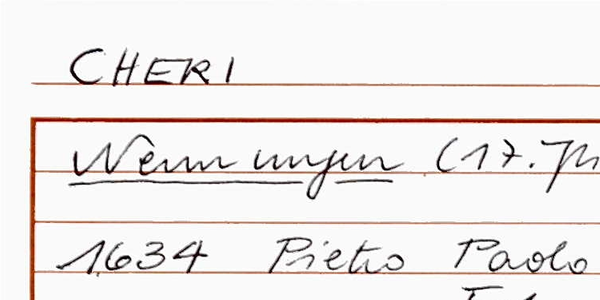 CHERI
Nennungen (17. Jh
1634 Pietro Paolo